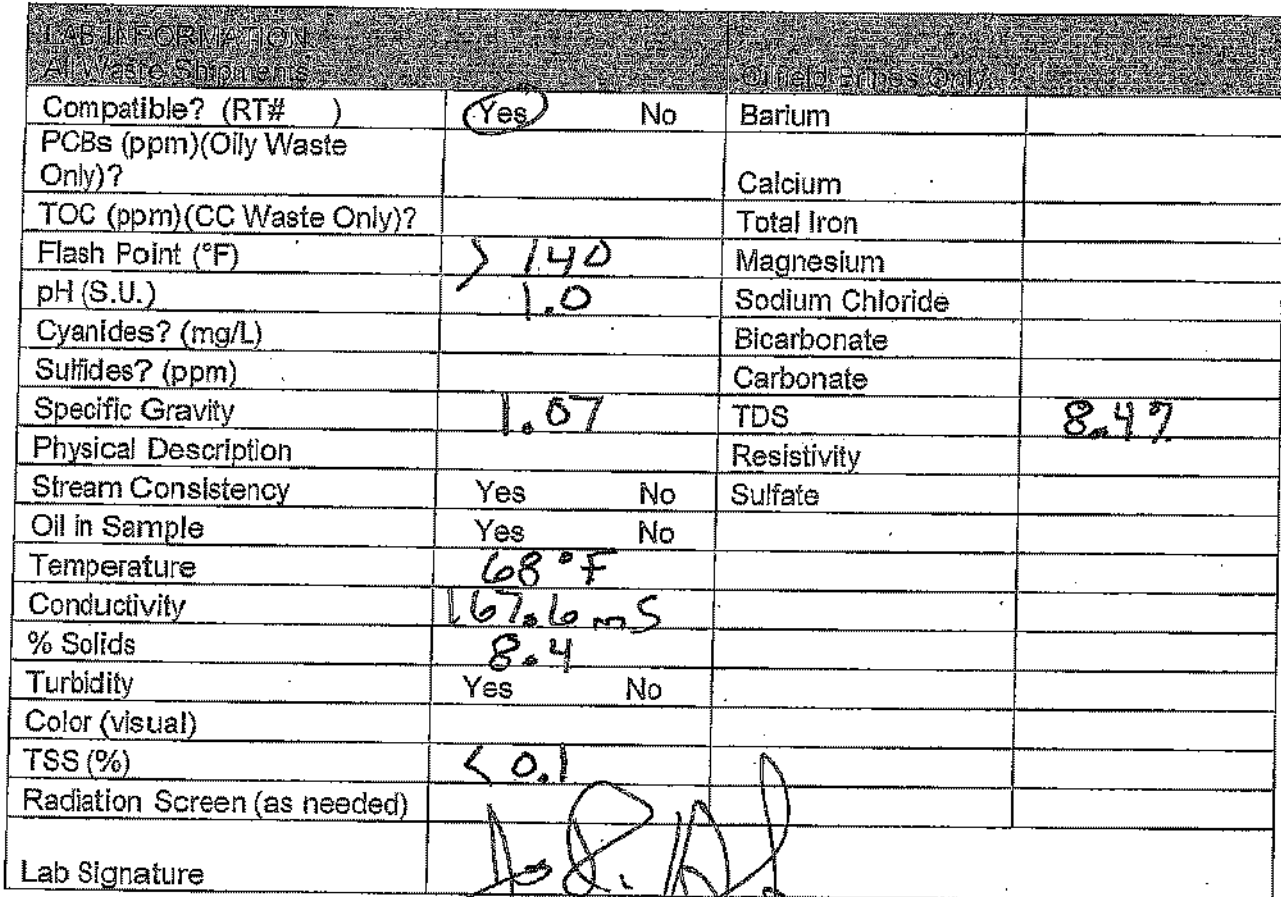 LAB INFORMATION
All Waste Shipments Oilfield Brines Only
Compatible? (RT# ) Yes No Barium
PCBs (ppm)(Oily Waste
Only)? Calcium
TOC (ppm)(CC Waste Only)? Total Iron
Flash Point (°F) > 140 Magnesium
pH (S.U.) 1.0 Sodium Chloride
Cyanides? (mg/L) Bicarbonate
Sulfides? (ppm) Carbonate
Specific Gravity 1.07 TDS 8.4%
Physical Description Resistivity
Stream Consistency Yes No Sulfate
Oil in Sample Yes No
Temperature 68°F
Conductivity 167.6 mS
% Solids 8.4
Turbidity Yes No
Color (visual)
TSS (%) < 0.1
Radiation Screen (as needed)
Lab Signature